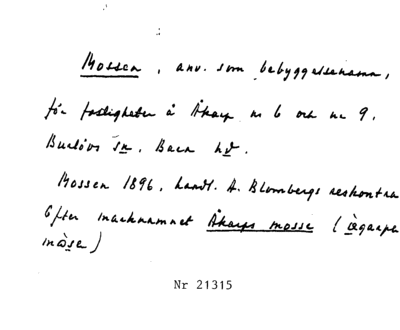 Mossen, anv. som bebyggelsenamn,
för fastigheter å Åkarp nr 6 och nr 9.
Burlövs sn. Bara hd.
Mossen 1896, handl. A. Blombergs reskontra
Efter marknamnet Åkarps mosse (ågarps
måse)
Nr 21315